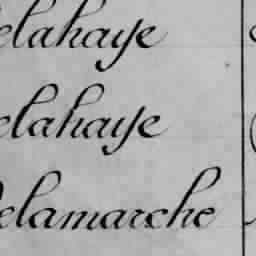 Delahaye
Delahaye
Delamarche